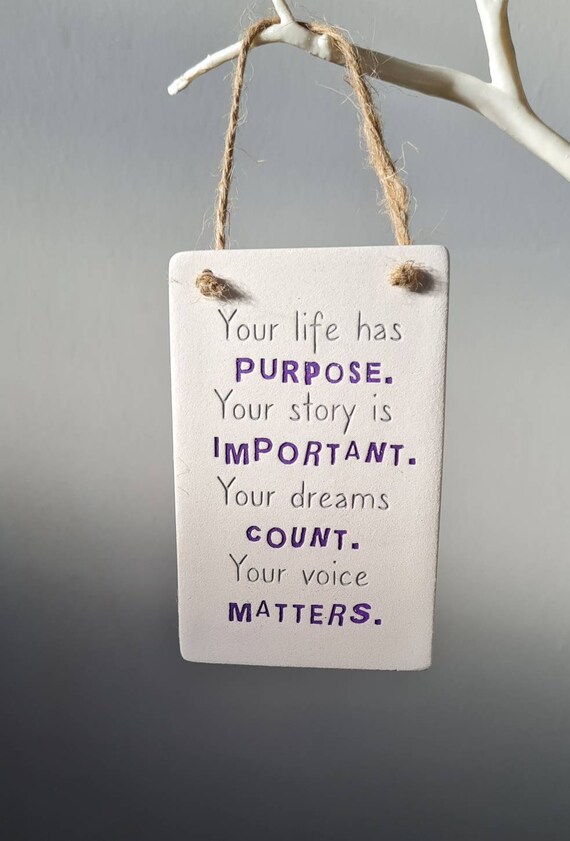 Your life has
PURPOSE.
Your story is
IMPORTANT.
Your dreams
COUNT.
Your voice
MATTERS.